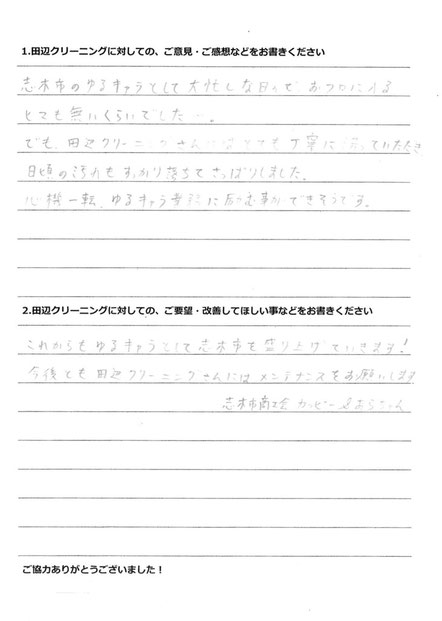 1.田辺クリーニングに対しての、ご意見・ご感想などをお書きください
志木市のゆるキャラとして大忙しな日々で、おフロに入る
とても無いくらいでした…。
でも、田辺クリーニングさんにはとても丁寧に洗っていただき
日頃の汚れもすっかり落ちてさっぱりしました。
心機一転、ゆるキャラ活動に励む事ができそうです。
2.田辺クリーニングに対しての、ご要望・改善してほしい事などをお書きください
これからもゆるキャラとして志木市を盛り上げていきます!
今後とも田辺クリーニングさんにはメンテナンスをお願いします
志木市商工会 カッピー&あらちゃん
ご協力ありがとうございました!